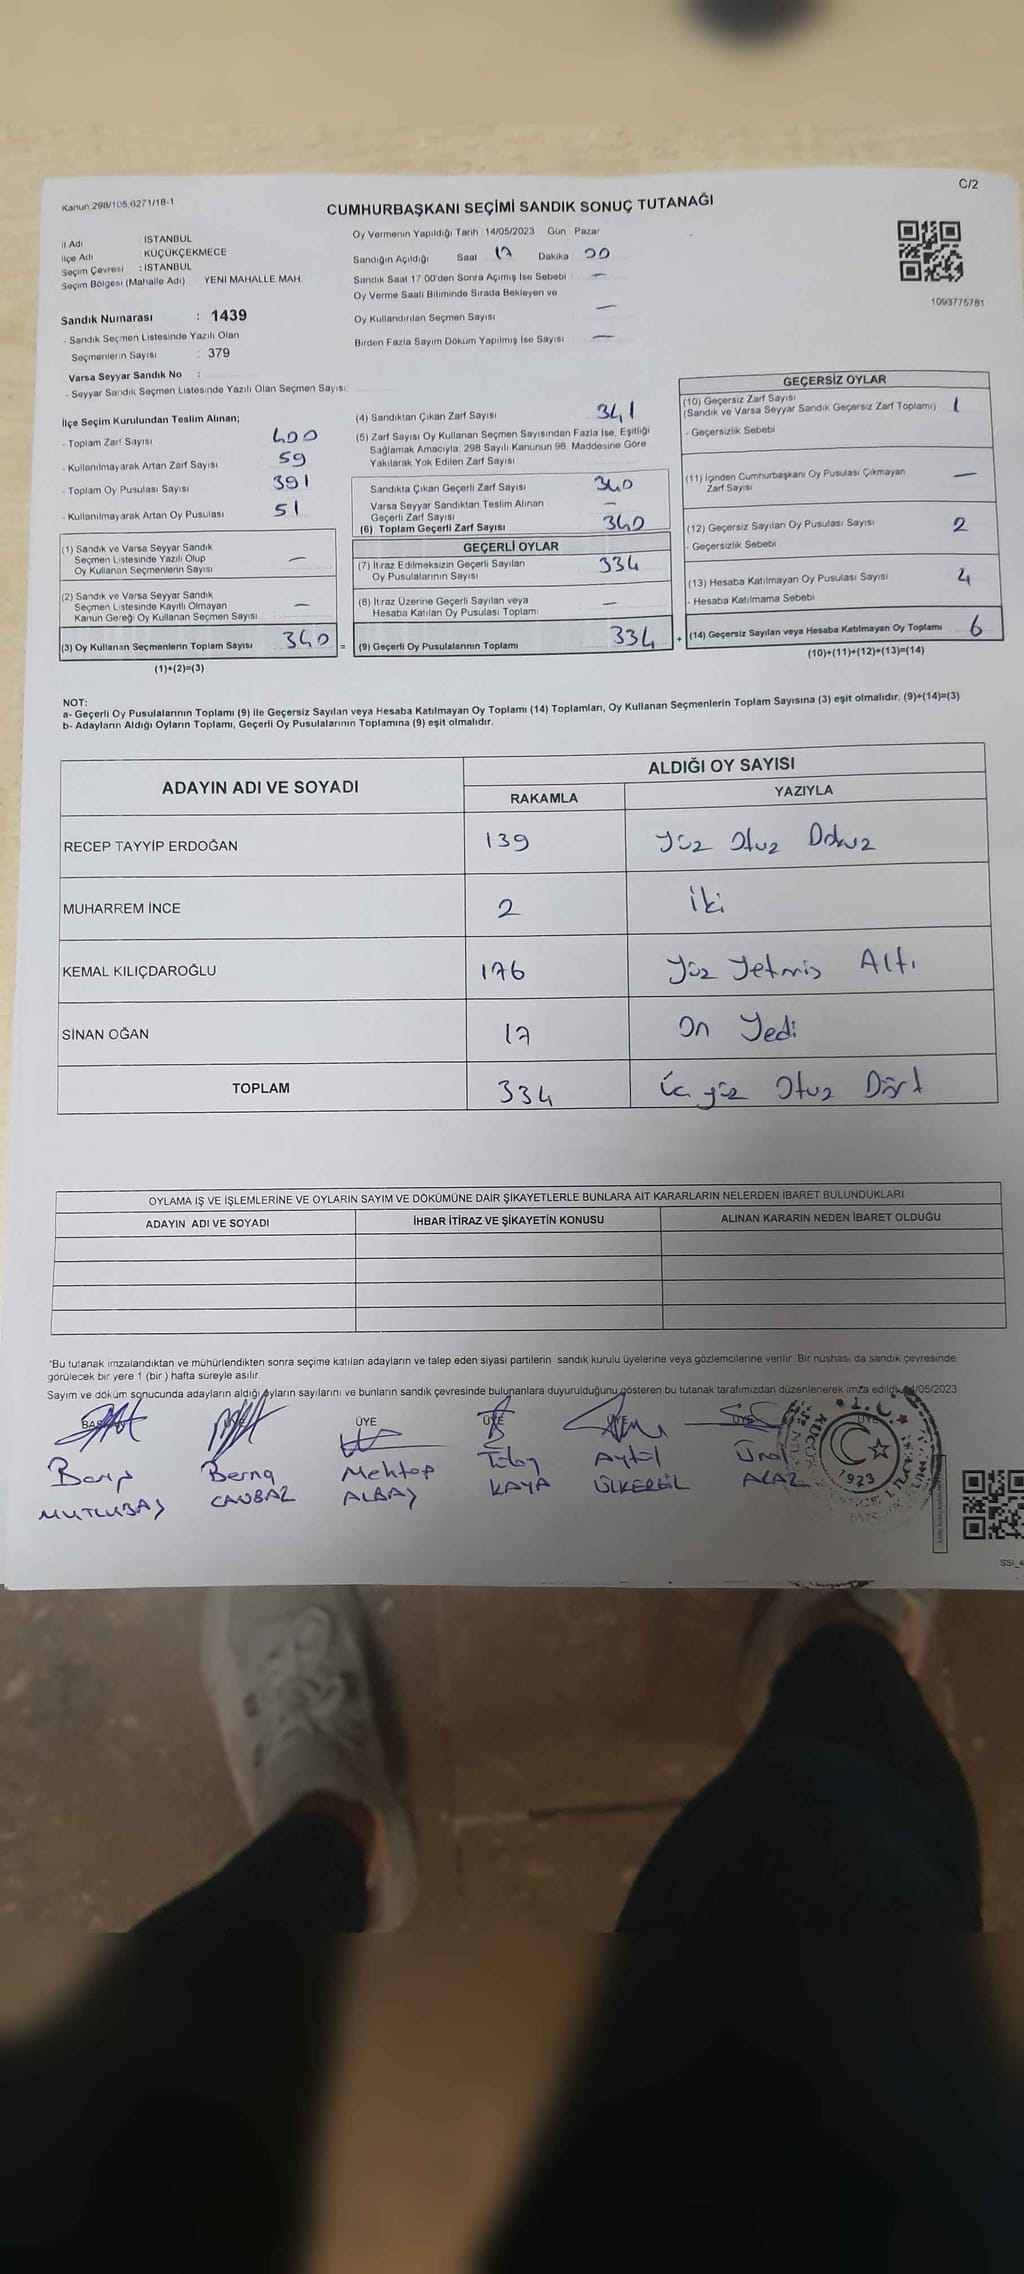 C/2
Kanun 298/105,6271/18-1
CUMHURBAŞKANI SEÇİMİ SANDIK SONUÇ TUTANAĞI
İl Adı İSTANBUL
İlçe Adı KÜÇÜKÇEKMECE
Seçim Çevresi : İSTANBUL
Seçim Bölgesi (Mahalle Adı) YENİ MAHALLE MAH.
Sandık Numarası : 1439
- Sandık Seçmen Listesinde Yazılı Olan
Seçmenlerin Sayısı : 379
Varsa Seyyar Sandık No :
- Seyyar Sandık Seçmen Listesinde Yazılı Olan Seçmen Sayısı:
Oy Vermenin Yapıldığı Tarih : 14/05/2023 Gün : Pazar
Sandığın Açıldığı Saat 17 Dakika 00
Sandık Saat 17:00'den Sonra Açılmış İse Sebebi : —
Oy Verme Saati Bitiminde Sırada Bekleyen ve
Oy Kullandırılan Seçmen Sayısı —
Birden Fazla Sayım Döküm Yapılmış İse Sayısı : —
1093775781
İlçe Seçim Kurulundan Teslim Alınan;
- Toplam Zarf Sayısı 400
- Kullanılmayarak Artan Zarf Sayısı 59
- Toplam Oy Pusulası Sayısı 391
- Kullanılmayarak Artan Oy Pusulası 51
(1) Sandık ve Varsa Seyyar Sandık
Seçmen Listesinde Yazılı Olup
Oy Kullanan Seçmenlerin Sayısı —
(2) Sandık ve Varsa Seyyar Sandık
Seçmen Listesinde Kayıtlı Olmayan
Kanun Gereği Oy Kullanan Seçmen Sayısı —
(3) Oy Kullanan Seçmenlerin Toplam Sayısı 340 =
(1)+(2)=(3)
(4) Sandıktan Çıkan Zarf Sayısı 341
(5) Zarf Sayısı Oy Kullanan Seçmen Sayısından Fazla İse, Eşitliği
Sağlamak Amacıyla, 298 Sayılı Kanunun 98. Maddesine Göre
Yakılarak Yok Edilen Zarf Sayısı
Sandıkta Çıkan Geçerli Zarf Sayısı 340
Varsa Seyyar Sandıktan Teslim Alınan
Geçerli Zarf Sayısı —
(6) Toplam Geçerli Zarf Sayısı 340
GEÇERLİ OYLAR
(7) İtiraz Edilmeksizin Geçerli Sayılan
Oy Pusulalarının Sayısı 334
(8) İtiraz Üzerine Geçerli Sayılan veya
Hesaba Katılan Oy Pusulası Toplamı —
(9) Geçerli Oy Pusulalarının Toplamı 334 +
GEÇERSİZ OYLAR
(10) Geçersiz Zarf Sayısı
(Sandık ve Varsa Seyyar Sandık Geçersiz Zarf Toplamı) 1
- Geçersizlik Sebebi
(11) İçinden Cumhurbaşkanı Oy Pusulası Çıkmayan
Zarf Sayısı —
(12) Geçersiz Sayılan Oy Pusulası Sayısı 2
- Geçersizlik Sebebi
(13) Hesaba Katılmayan Oy Pusulası Sayısı 4
- Hesaba Katılmama Sebebi
(14) Geçersiz Sayılan veya Hesaba Katılmayan Oy Toplamı 6
(10)+(11)+(12)+(13)=(14)
NOT:
a- Geçerli Oy Pusulalarının Toplamı (9) ile Geçersiz Sayılan veya Hesaba Katılmayan Oy Toplamı (14) Toplamları, Oy Kullanan Seçmenlerin Toplam Sayısına (3) eşit olmalıdır. (9)+(14)=(3)
b- Adayların Aldığı Oyların Toplamı, Geçerli Oy Pusulalarının Toplamına (9) eşit olmalıdır.
ADAYIN ADI VE SOYADI ALDIĞI OY SAYISI
RAKAMLA YAZIYLA
RECEP TAYYİP ERDOĞAN 139 Yüz Otuz Dokuz
MUHARREM İNCE 2 İki
KEMAL KILIÇDAROĞLU 176 Yüz Yetmiş Altı
SİNAN OĞAN 17 On Yedi
TOPLAM 334 Üç yüz Otuz Dört
OYLAMA İŞ VE İŞLEMLERİNE VE OYLARIN SAYIM VE DÖKÜMÜNE DAİR ŞİKAYETLERLE BUNLARA AİT KARARLARIN NELERDEN İBARET BULUNDUKLARI
ADAYIN ADI VE SOYADI İHBAR İTİRAZ VE ŞİKAYETİN KONUSU ALINAN KARARIN NEDEN İBARET OLDUĞU
*Bu tutanak imzalandıktan ve mühürlendikten sonra seçime katılan adayların ve talep eden siyasi partilerin sandık kurulu üyelerine veya gözlemcilerine verilir. Bir nüshası da sandık çevresinde
görülecek bir yere 1 (bir) hafta süreyle asılır.
Sayım ve döküm sonucunda adayların aldığı oyların sayılarını ve bunların sandık çevresinde bulunanlara duyurulduğunu gösteren bu tutanak tarafımızdan düzenlenerek imza edildi. 14/05/2023
ÜYE ÜYE ÜYE ÜYE
Berna Mehtap Aytül
MUTLUBAŞ CANBAZ ALBAY KAYA
T.C.
1923